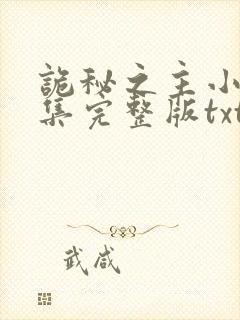 诡秘之主小
集完整版txt
武咸